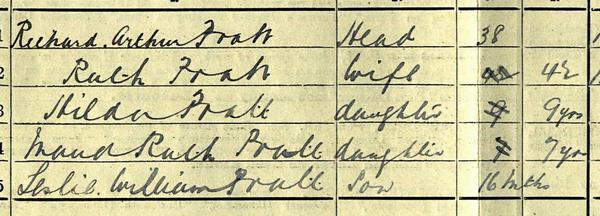 Richard Arthur Fratt Head 38
2 Ruth Fratt Wife 42
3 Hilda Fratt daughter 9 9yrs
4 Maud Ruth Fratt daughter 7 7yrs
5 Leslie William Fratt Son 16 mths